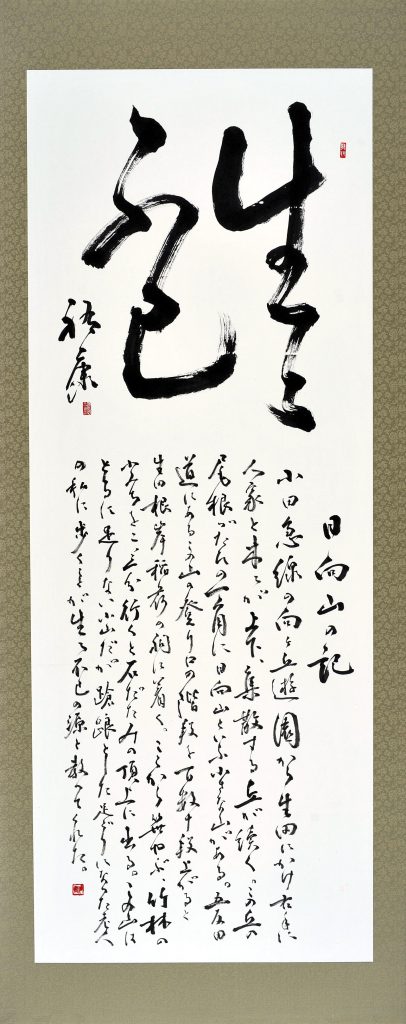 生々
不已
日向山の記
小田急線の向ヶ丘遊園から生田にかけ右手に
人家と木々が上下、集散する丘が続く。その丘の
尾根がだれの一角に日向山といふ小さな山がある。五反田
道にあるその山の登り口の階段を百数十段上がると
生田根岸稲荷の祠に着く。ここから笹やぶ、竹林の
小道を二、三分行くと石だたみの頂上に出る。その山は
とるに足りない小山だが蹌踉とした足どりになった老人
の私に歩くことが生々不已の源と教へてくれた。